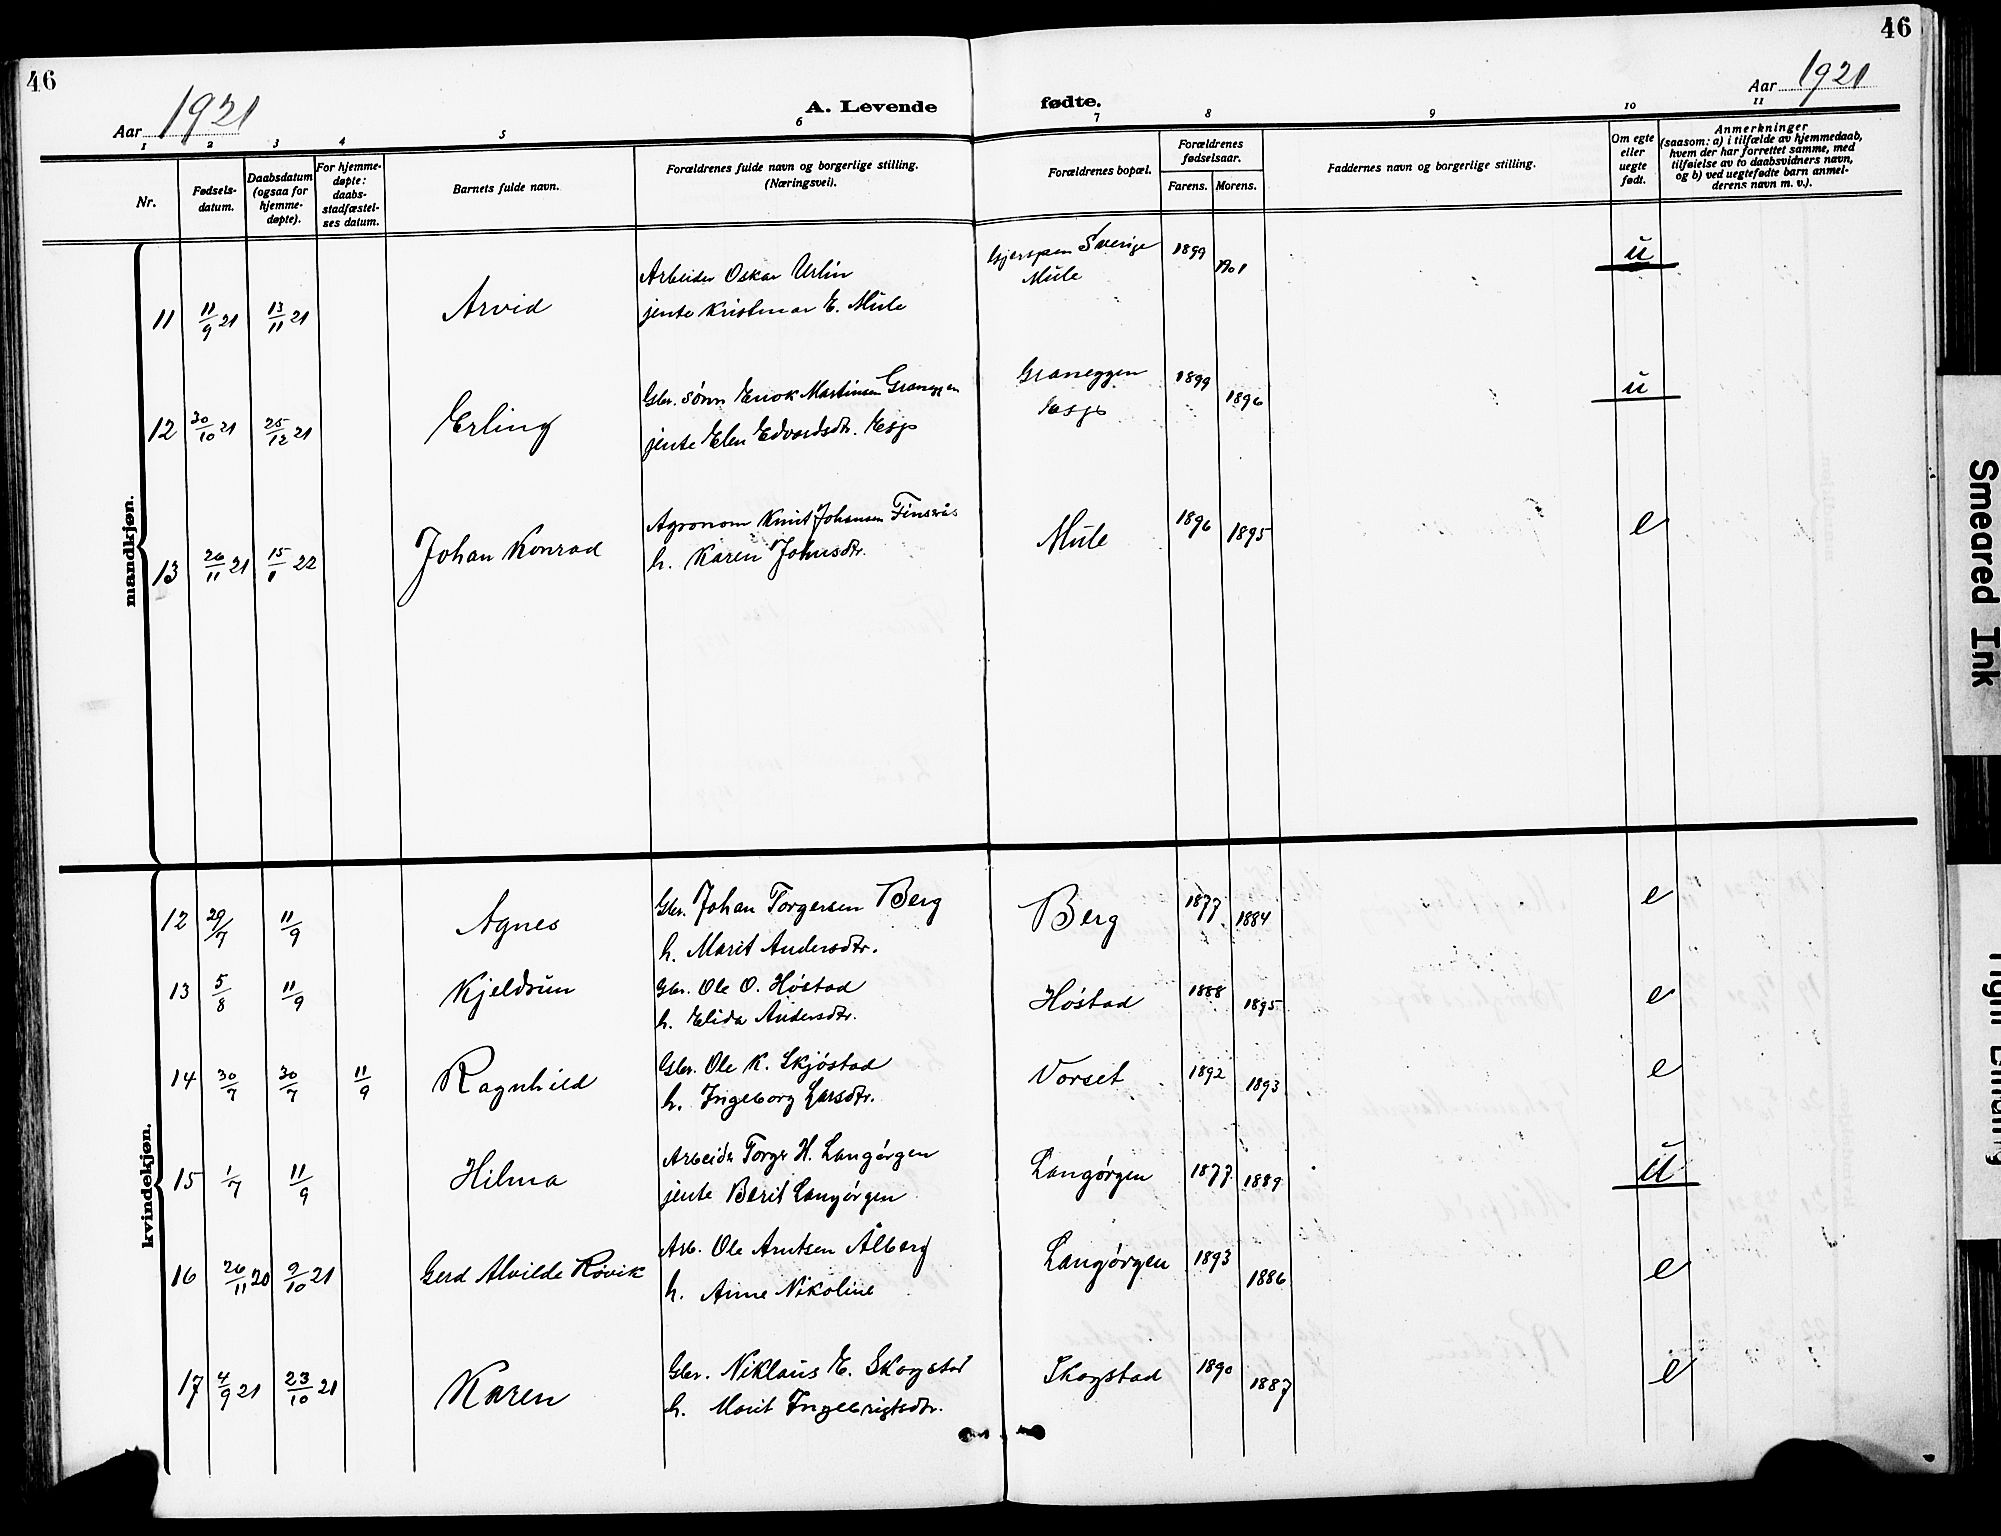 46
46
Aar 1921
A. Levende fødte.
Aar 1921
1 2 3 4 5 6 7 8 9 10 11
Nr.
Fødsels-
datum.
Daabsdatum
(ogsaa for
hjemme-
døpte).
For hjemme-
døpte:
daabs-
stadfæstel-
ses datum.
Barnets fulde navn.
Forældrenes fulde navn og borgerlige stilling.
(Næringsvei).
Forældrenes bopæl.
Forældrenes
fødselsaar.
Farens. Morens.
Faddernes navn og borgerlige stilling.
Om egte
eller
uegte
født.
Anmerkninger
(saasom: a) i tilfælde av hjemmedaab,
hvem der har forrettet samme, med
tilføielse av to daabsvidners navn,
og b) ved uegtefødte barn anmel-
derens navn m. v.).
mandkjøn.
11 11/9 21 13/11 21 Arvid
Arbeider Oskar Urlin
jente Kristine E. Mule
Sverige
Mule
1899 1901 u
12 30/10 21 25/12 21 Erling
Gbr. sønn Enok Martinsen Graneggen
jente Elen Edvardsdtr. Esp
Graneggen
Esp
1899 1896 u
13 26/11 21 15/1 22 Johan Konrad
Agronom Knut Johansen Finserås
h. Karen Johnsdtr.
Mule
1896 1895 e
kvindekjøn.
12 29/7 11/9 Agnes
Gbr. Johan Torgersen Berg
h. Marit Andersdtr.
Berg
1877 1884 e
13 5/8 11/9 Kjeldrun
Gbr. Ole O. Høstad
h. Elida Andersdtr.
Høstad
1888 1895 e
14 30/7 30/7 11/9 Ragnhild
Gbr. Ole K. Skjøstad
h. Ingeborg Larsdtr.
Vorset
1892 1893 e
15 1/7 11/9 Hilma
Arbeider Torger H. Langørgen
jente Berit Langørgen
Langørgen
1877 1889 u
16 26/11 20 9/10 21 Gerd Alvilde Røvik
Arb. Ole Arntsen Ålberg
h. Anne Nikoline
Langørgen
1893 1886 e
17 4/9 21 23/10 21 Karen
Gbr. Niklaus E. Skogstad
h. Marit Ingebrigtsdtr.
Skogstad
1890 1887 e
Smeared Ink
Tight Binding